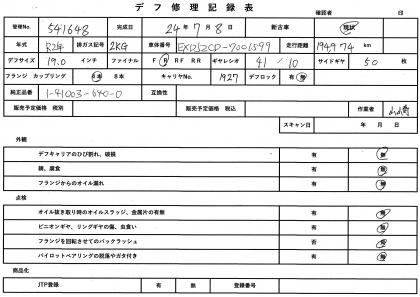 デフ修理記録表
確認者 印
管理No. 541648 完成日 24年7月8日 新古車 現状
年式 R2年 排ガス記号 2KG 車体番号 EXD52CD-7006599 走行距離 194974 km
デフサイズ 19.0 インチ ファイナル F R RF RR ギヤレシオ 41/10 サイドギヤ 50 枚
フランジ カップリング 4本 8本 キャリヤNo. 1927 デフロック 有 無
純正品番 1-41003-640-0 互換性
販売予定価格 税別 販売予定価格 税込 作業者
スキャン日 年 月 日
外観
デフキャリアのひび割れ、破損 有 無
錆、腐食 有 無
フランジからのオイル漏れ 有 無
点検
オイル抜き取り時のオイルスラッジ、金属片の有無 有 無
ピニオンギヤ、リングギヤの傷、虫食い 有 無
フランジを回転させてのバックラッシュ 否 良
パイロットベアリングの脱落やガタ付き 有 無
商品化
JTP登録 有 無